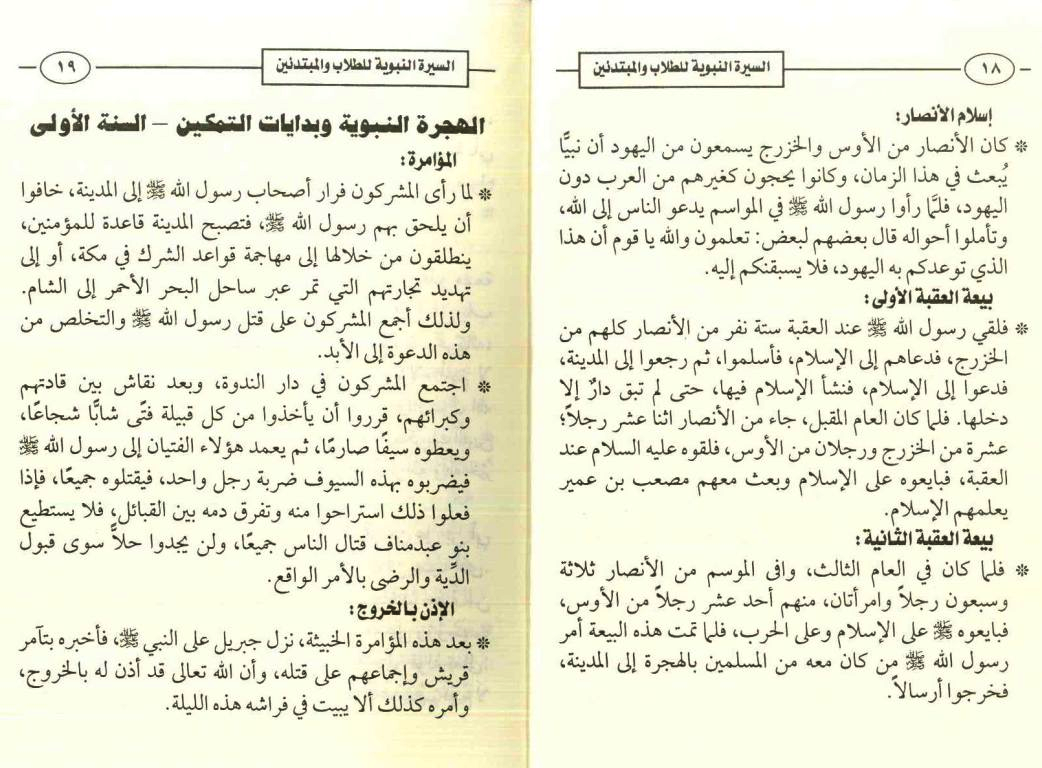 السيرة النبوية للطلاب والمبتدئين ١٨
إسلام الأنصار:
* كان الأنصار من الأوس والخزرج يسمعون من اليهود أن نبيًّا
يُبعث في هذا الزمان، وكانوا يحجون كغيرهم من العرب دون
اليهود، فلمَّا رأوا رسول الله ﷺ في المواسم يدعو الناس إلى الله،
وتأملوا أحواله قال بعضهم لبعض: تعلمون والله يا قوم أن هذا
الذي توعدكم به اليهود، فلا يسبقنكم إليه.
بيعة العقبة الأولى:
* فلقي رسول الله ﷺ عند العقبة ستة نفر من الأنصار كلهم من
الخزرج، فدعاهم إلى الإسلام، فأسلموا، ثم رجعوا إلى المدينة،
فدعوا إلى الإسلام، فنشأ الإسلام فيها، حتى لم تبق دارٌ إلا
دخلها. فلما كان العام المقبل، جاء من الأنصار اثنا عشر رجلاً؛
عشرة من الخزرج ورجلان من الأوس، فلقوه عليه السلام عند
العقبة، فبايعوه على الإسلام وبعث معهم مصعب بن عمير
يعلمهم الإسلام.
بيعة العقبة الثانية:
* فلما كان في العام الثالث، وافى الموسم من الأنصار ثلاثة
وسبعون رجلاً وامرأتان، منهم أحد عشر رجلاً من الأوس،
فبايعوه ﷺ على الإسلام وعلى الحرب، فلما تمت هذه البيعة أمر
رسول الله ﷺ من كان معه من المسلمين بالهجرة إلى المدينة،
فخرجوا أرسالاً.
السيرة النبوية للطلاب والمبتدئين ١٩
الهجرة النبوية وبدايات التمكين – السنة الأولى
المؤامرة:
* لما رأى المشركون فرار أصحاب رسول الله ﷺ إلى المدينة، خافوا
أن يلحق بهم رسول الله ﷺ، فتصبح المدينة قاعدة للمؤمنين،
ينطلقون من خلالها إلى مهاجمة قواعد الشرك في مكة، أو إلى
تهديد تجارتهم التي تمر عبر ساحل البحر الأحمر إلى الشام.
ولذلك أجمع المشركون على قتل رسول الله ﷺ والتخلص من
هذه الدعوة إلى الأبد.
* اجتمع المشركون في دار الندوة، وبعد نقاش بين قادتهم
وكبرائهم، قرروا أن يأخذوا من كل قبيلة فتًى شابًّا شجاعًا،
ويعطوه سيفًا صارمًا، ثم يعمد هؤلاء الفتيان إلى رسول الله ﷺ
فيضربوه بهذه السيوف ضربة رجل واحد، فيقتلوه جميعًا، فإذا
فعلوا ذلك استراحوا منه وتفرق دمه بين القبائل، فلا يستطيع
بنو عبدمناف قتال الناس جميعًا، ولن يجدوا حلاًّ سوى قبول
الدِّية والرضى بالأمر الواقع.
الإذن بالخروج:
* بعد هذه المؤامرة الخبيثة، نزل جبريل على النبي ﷺ، فأخبره بتآمر
قريش وإجماعهم على قتله، وأن الله تعالى قد أذن له بالخروج،
وأمره كذلك ألا يبيت في فراشه هذه الليلة.